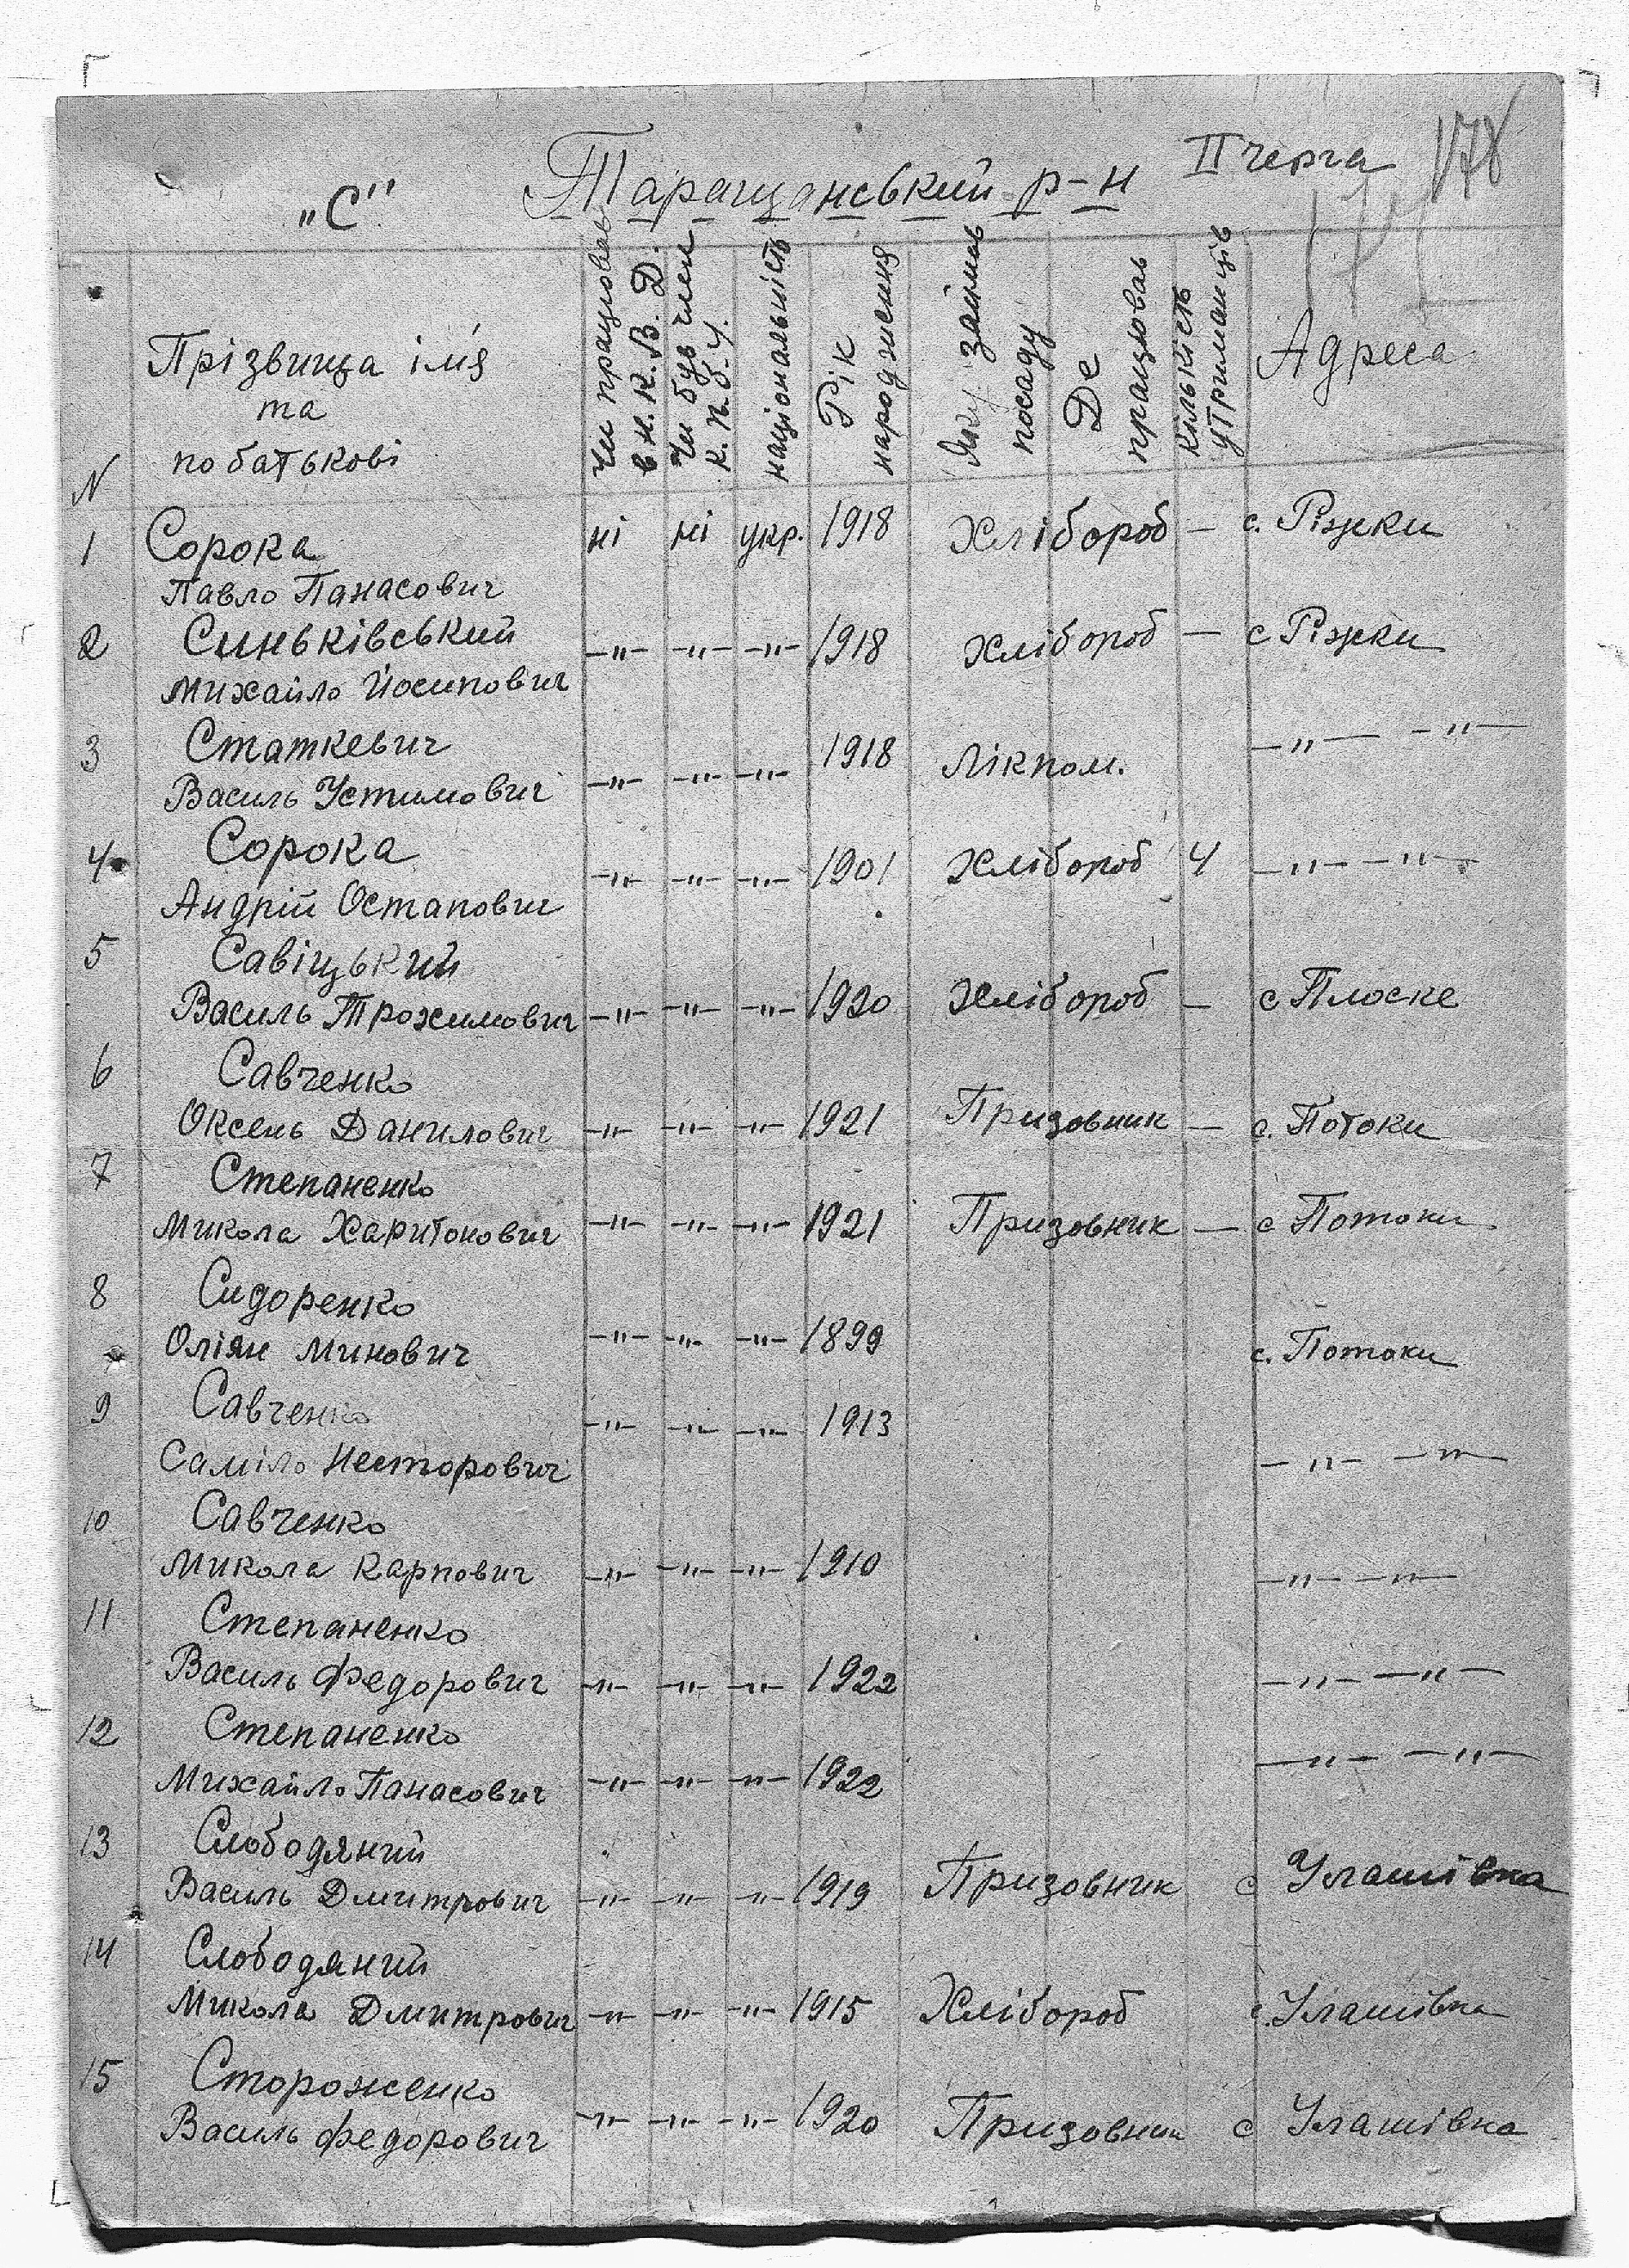 ІІ черга 178
„С" Таращанський р-н
N Прізвища ім'я та по батькові Чи працював в Н.К.В.Д. Чи був член К.П.б.У. національність Рік народження Яку займав посаду Де працював кількість утриманців Адреса
1 Сорока ні ні укр. 1918 Хлібороб — с. Ріжки
Павло Панасович
2 Синьківський —"— —"— —"— 1918 Хлібороб — с Ріжки
Михайло Йосипович
3 Статкевич 1918 Лікпом. —"— —"—
Василь Устимович —"— —"— —"—
4 Сорока —"— —"— —"— 1901 Хлібороб 4 —"— —"—
Андрій Остапович
5 Савіцький
Василь Трохимович —"— —"— —"— 1920 Хлібороб — с Плоске
6 Савченко
Оксень Данилович —"— —"— —"— 1921 Призовник — с. Потоки
7 Степаненко
Микола Харитонович —"— —"— —"— 1921 Призовник — с Потоки
8 Сидоренко
Оліян Минович —"— —"— —"— 1899 с. Потоки
9 Савченко —"— —"— —"— 1913
Саміло Несторович —"— —"—
10 Савченко
Микола Карпович —"— —"— —"— 1910 —"— —"—
11 Степаненко
Василь Федорович —"— —"— —"— 1922 —"— —"—
12 Степаненко
Михайло Панасович —"— —"— —"— 1922 —"— —"—
13 Слободяний
Василь Дмитрович —"— —"— —"— 1919 Призовник с Улашівка
14 Слободяний
Микола Дмитрович —"— —"— —"— 1915 Хлібороб с. Улашівка
15 Стороженко
Василь Федорович —"— —"— —"— 1920 Призовник с Улашівка